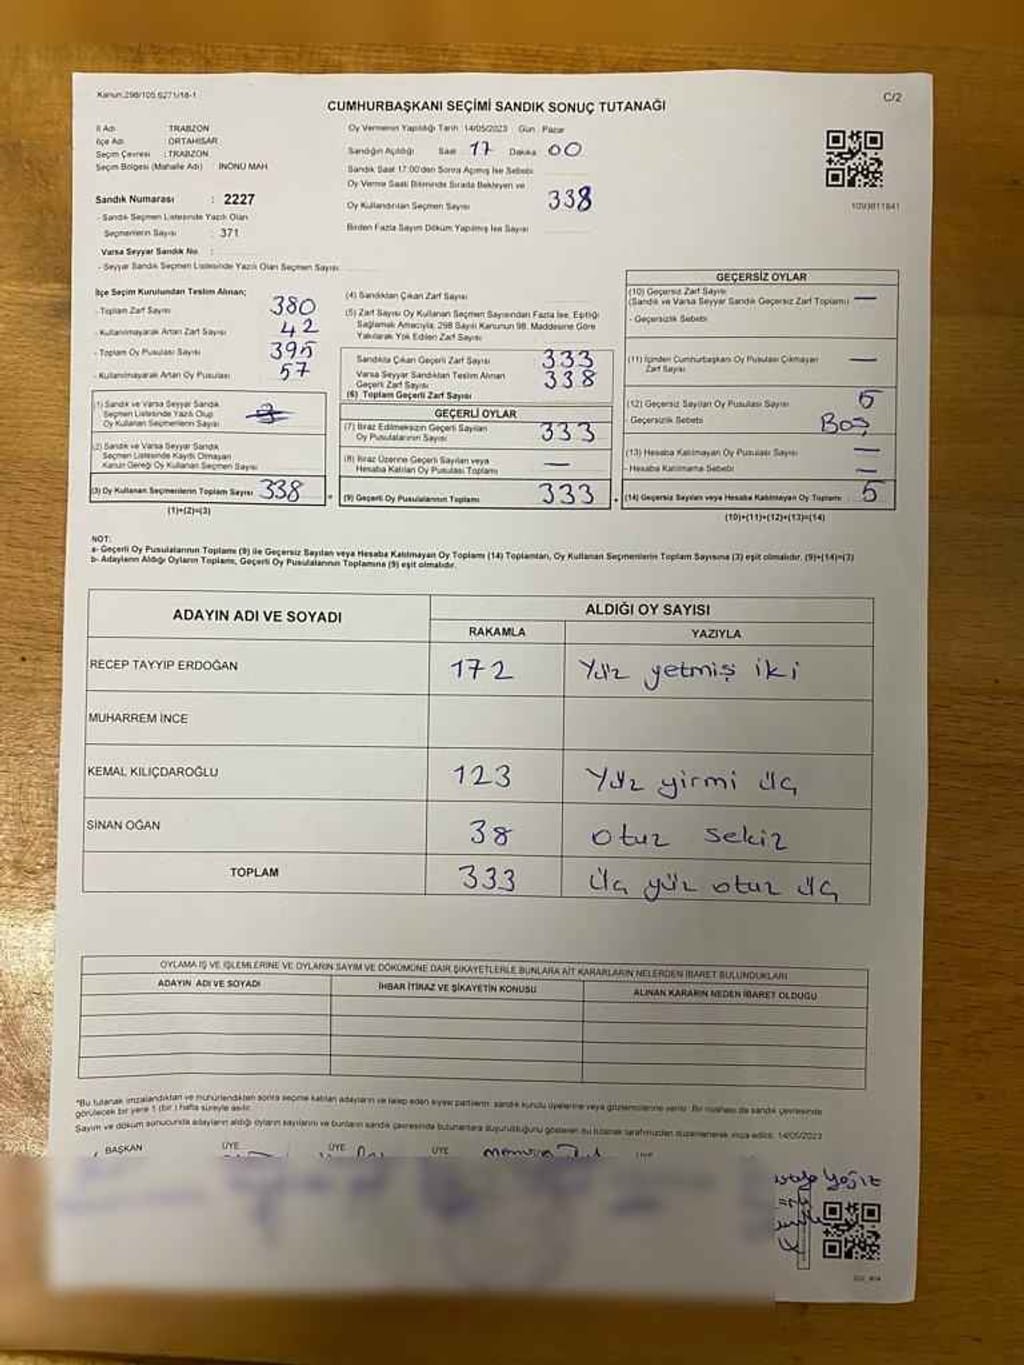 Kanun:298/105,6271/18-1
CUMHURBAŞKANI SEÇİMİ SANDIK SONUÇ TUTANAĞI
C/2
İl Adı : TRABZON
İlçe Adı : ORTAHİSAR
Seçim Çevresi : TRABZON
Seçim Bölgesi (Mahalle Adı) : İNÖNÜ MAH.
Sandık Numarası : 2227
- Sandık Seçmen Listesinde Yazılı Olan
Seçmenlerin Sayısı : 371
Varsa Seyyar Sandık No :
- Seyyar Sandık Seçmen Listesinde Yazılı Olan Seçmen Sayısı:
Oy Vermenin Yapıldığı Tarih :14/05/2023 Gün : Pazar
Sandığın Açıldığı Saat 17 Dakika 00
Sandık Saat 17:00'den Sonra Açılmış İse Sebebi
Oy Verme Saati Bitiminde Sırada Bekleyen ve
Oy Kullandırılan Seçmen Sayısı 338
Birden Fazla Sayım Döküm Yapılmış İse Sayısı
1093811841
İlçe Seçim Kurulundan Teslim Alınan;
- Toplam Zarf Sayısı 380
- Kullanılmayarak Artan Zarf Sayısı 42
- Toplam Oy Pusulası Sayısı 395
- Kullanılmayarak Artan Oy Pusulası 57
(1) Sandık ve Varsa Seyyar Sandık
Seçmen Listesinde Yazılı Olup
Oy Kullanan Seçmenlerin Sayısı
(2) Sandık ve Varsa Seyyar Sandık
Seçmen Listesinde Kaydı Olmayan
Kanun Gereği Oy Kullanan Seçmen Sayısı
(3) Oy Kullanan Seçmenlerin Toplam Sayısı 338
(1)+(2)=(3)
(4) Sandıktan Çıkan Zarf Sayısı
(5) Zarf Sayısı Oy Kullanan Seçmen Sayısından Fazla İse, Eşitliği
Sağlamak Amacıyla, 298 Sayılı Kanunun 98. Maddesine Göre
Yakılarak Yok Edilen Zarf Sayısı
Sandıkta Çıkan Geçerli Zarf Sayısı 333
Varsa Seyyar Sandıktan Teslim Alınan
Geçerli Zarf Sayısı 338
(6) Toplam Geçerli Zarf Sayısı
GEÇERLİ OYLAR
(7) İtiraz Edilmeksizin Geçerli Sayılan
Oy Pusulalarının Sayısı 333
(8) İtiraz Üzerine Geçerli Sayılan veya
Hesaba Katılan Oy Pusulası Toplamı —
(9) Geçerli Oy Pusulalarının Toplamı 333
GEÇERSİZ OYLAR
(10) Geçersiz Zarf Sayısı
(Sandık ve Varsa Seyyar Sandık Geçersiz Zarf Toplamı) —
- Geçersizlik Sebebi
(11) İçinden Cumhurbaşkanı Oy Pusulası Çıkmayan
Zarf Sayısı —
(12) Geçersiz Sayılan Oy Pusulası Sayısı 5
- Geçersizlik Sebebi Boş
(13) Hesaba Katılmayan Oy Pusulası Sayısı —
- Hesaba Katılmama Sebebi —
(14) Geçersiz Sayılan veya Hesaba Katılmayan Oy Toplamı 5
(10)+(11)+(12)+(13)=(14)
NOT:
a- Geçerli Oy Pusulalarının Toplamı (9) ile Geçersiz Sayılan veya Hesaba Katılmayan Oy Toplamı (14) Toplamları, Oy Kullanan Seçmenlerin Toplam Sayısına (3) eşit olmalıdır. (9)+(14)=(3)
b- Adayların Aldığı Oyların Toplamı, Geçerli Oy Pusulalarının Toplamına (9) eşit olmalıdır.
ADAYIN ADI VE SOYADI
ALDIĞI OY SAYISI
RAKAMLA YAZIYLA
RECEP TAYYİP ERDOĞAN 172 Yüz yetmiş iki
MUHARREM İNCE
KEMAL KILIÇDAROĞLU 123 Yüz yirmi üç
SİNAN OĞAN 38 otuz sekiz
TOPLAM 333 üç yüz otuz üç
OYLAMA İŞ VE İŞLEMLERİNE VE OYLARIN SAYIM VE DÖKÜMÜNE DAİR ŞİKAYETLERLE BUNLARA AİT KARARLARIN NELERDEN İBARET BULUNDUKLARI
ADAYIN ADI VE SOYADI İHBAR İTİRAZ VE ŞİKAYETİN KONUSU ALINAN KARARIN NEDEN İBARET OLDUĞU
*Bu tutanak imzalandıktan ve mühürlendikten sonra seçime katılan adayların ve talep eden siyasi partilerin sandık kurulu üyelerine veya gözlemcilerine verilir. Bir nüshası da sandık çevresinde
görülecek bir yere 1 (bir ) hafta süreyle asılır.
Sayım ve döküm sonucunda adayların aldığı oyların sayılarını ve bunların sandık çevresinde bulunanlara duyurulduğunu gösteren bu tutanak tarafımızdan düzenlenerek imza edildi. 14/05/2023
BAŞKAN ÜYE ÜYE ÜYE